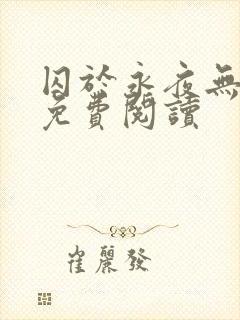 囚於永夜無
免費閱讀
崔麗發